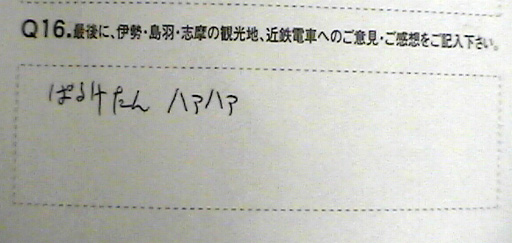 Q16.最後に、伊勢・島羽・志摩の観光地、近鉄電車へのご意見・ご感想をご記入下さい。
ぱるけたん ハァハァ